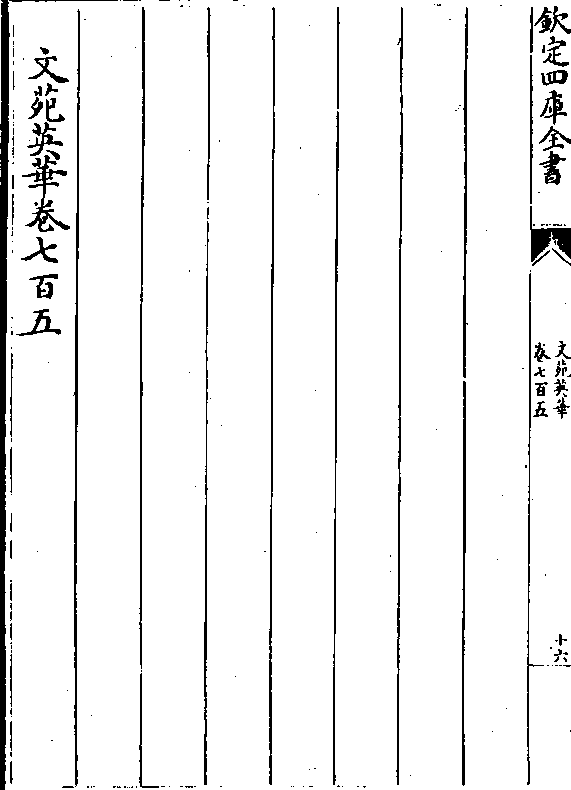 欽定四庫全書
文苑英華
卷七百五
十六
文苑英華卷七百五